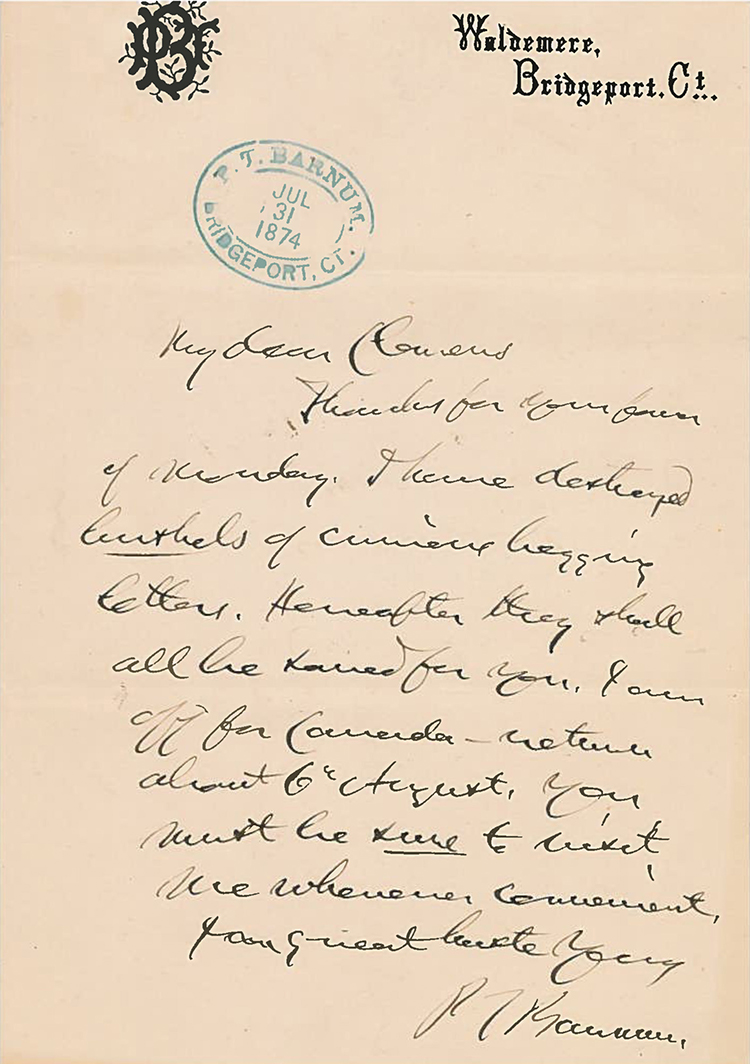 PB
Waldemere,
Bridgeport, Ct.
P. T. BARNUM.
JUL
31
1874
BRIDGEPORT, CT.
My dear Clemens
Thanks for your favor
of Monday. I have destroyed
bushels of curious begging
letters. Hereafter they shall
all be saved for you. I am
off for Canada – return
about 6th August. You
must be sure to visit
me whenever convenient.
great haste Yours
P T Barnum.